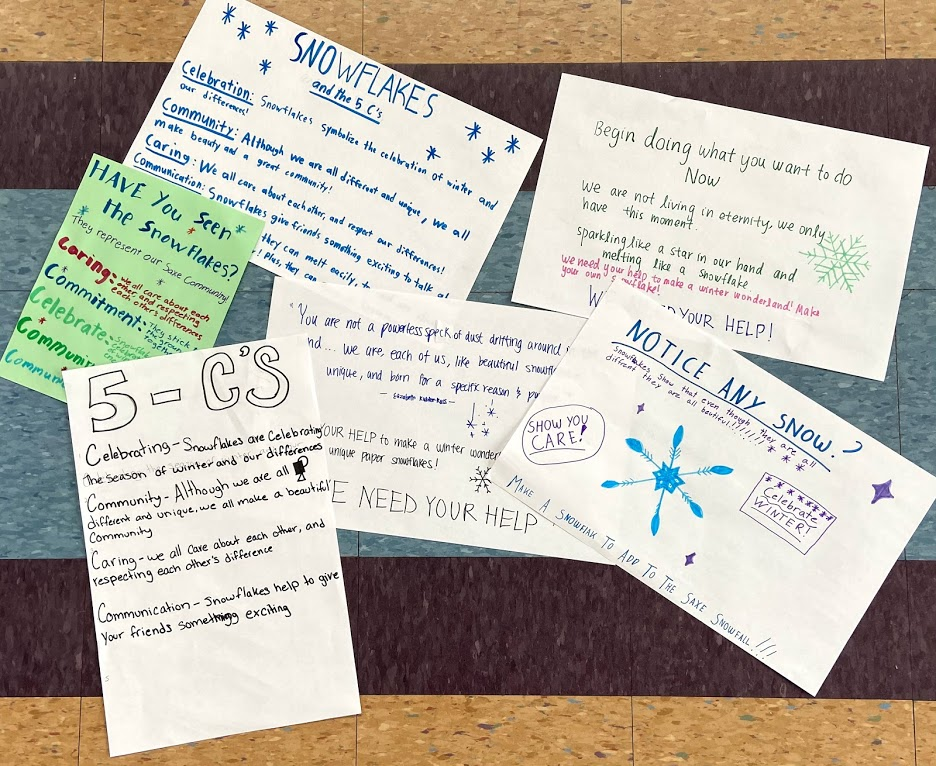 SNOWFLAKES
and the 5 C's
Celebration: Snowflakes symbolize the celebration of winter and
our differences!
Community: Although we are all different and unique, we all
make beauty and a great community!
Caring: We all care about each other, and respect our differences!
Communication: Snowflakes give friends something exciting to talk
they can melt easily,
! Plus, they can
Begin doing what you want to do
Now
We are not living in eternity, we only
have this moment.
sparkling like a star in our hand and
melting like a snowflake
we need your help to make a winter wonderland! Make
your own snowflake!
YOUR HELP!
HAVE YOU SEEN
the SNOWFLAKES?
They represent our Saxe Community!
Caring:- We all care about each
other, and respecting
each other's difference
Commitment:- They stick
to the ground
together
Celebrate:-
"You are not a powerless speck of dust drifting around
... we are, each of us, like beautiful
unique, and born for a specific reason &
YOUR HELP to make a winter
unique paper snowflakes!
NEED YOUR HELP
NOTICE ANY SNOW.?
Snowflakes show that even though they are all
different they are all beutiful!!!!!!!
SHOW YOU
CARE!
Celebrate
WINTER!
MAKE A SNOWFLAK TO ADD TO THE SAXE SNOWFALL!!!
5-C'S
Celebrating - Snowflakes are Celebrating
the season of winter and our differences
Community - Although we are all
different and unique, we all make a beautiful
Community
Caring - we all care about each other, and
respecting each other's difference
Communication - Snowflakes help to give
your friends something exciting